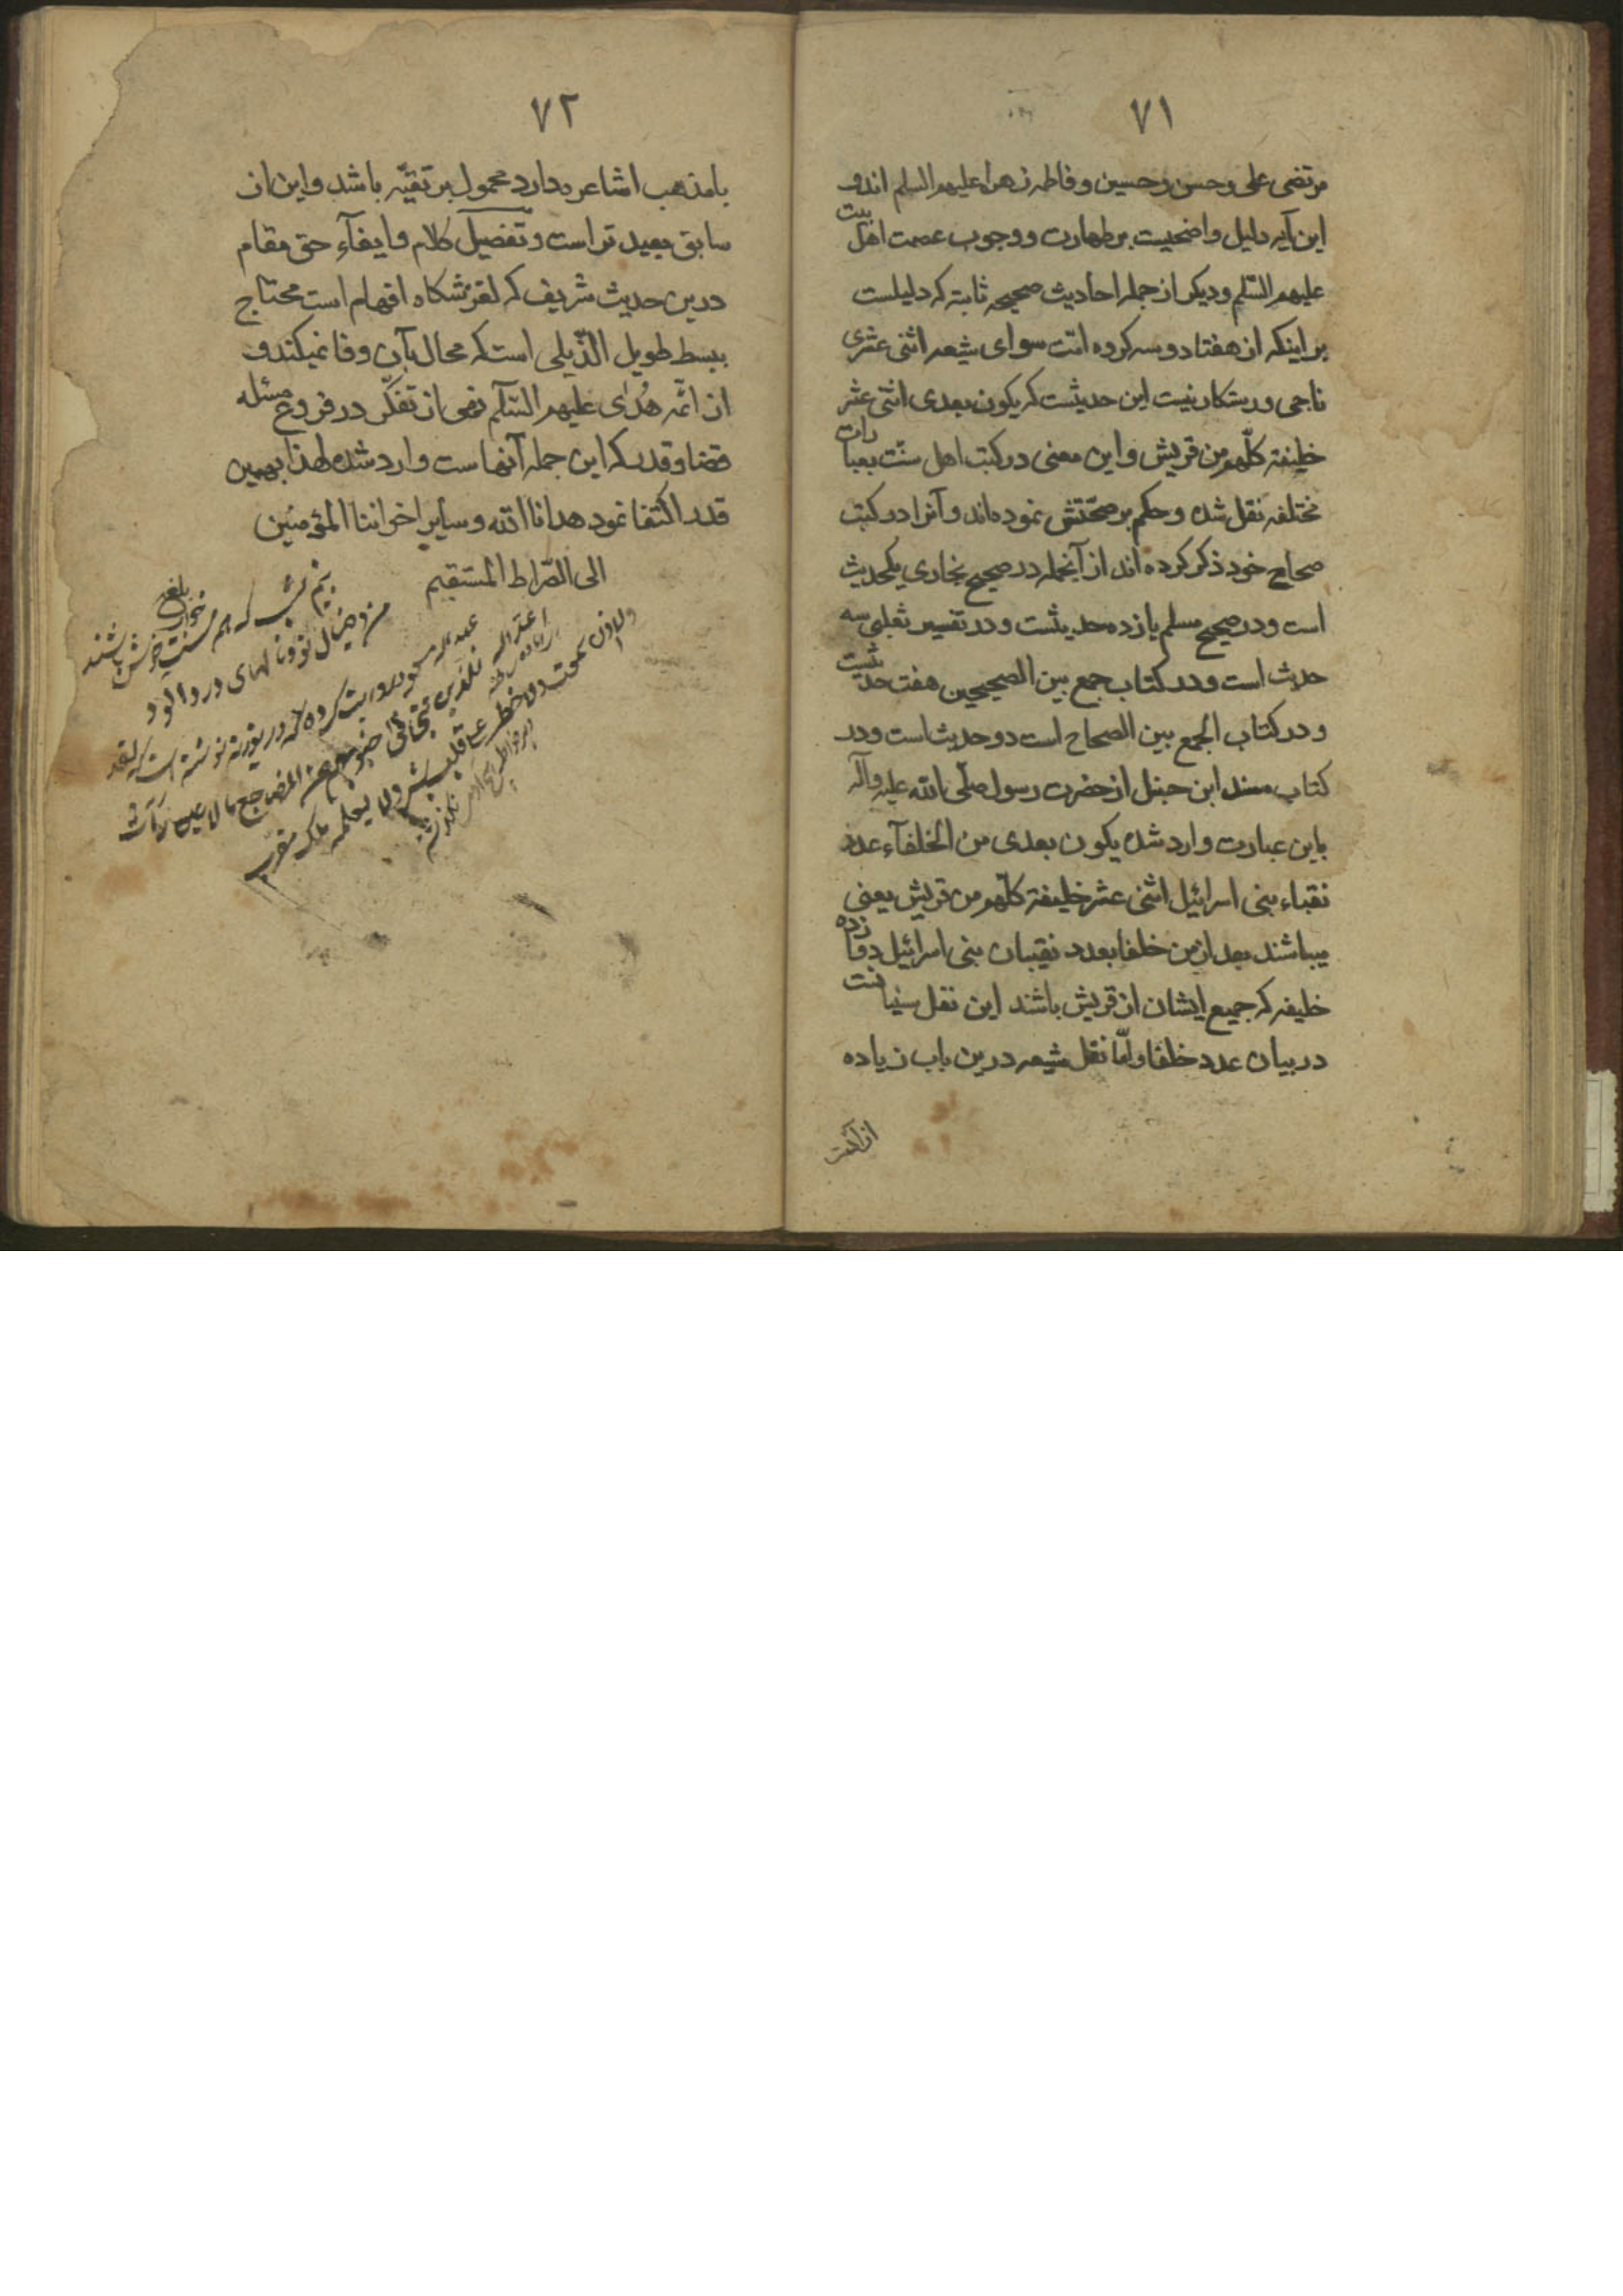 ۷۱
مرتضی علی و حسن و حسین و فاطمه زهراء علیهم السلم اند و
این آیه دلیل واضحیست بر طهارت و وجوب عصمت اهل بیت
علیهم السّلم و دیکر از جمله احادیث صحیحه ثابته که دلیلست
بر اینکه از هفتاد و سه کروه امّت سوای شیعه اثنی عشری
ناجی و رستکار نیست این حدیثست که یکون بعدی اثنی عشر
خلیفة کلّهم من قریش و این معنی در کتب اهل سنّت بعبارات
مختلفه نقل شده و حکم بر صحّتش نموده‌اند و آنرا در کتب
صحاح خود ذکر کرده اند از آنجمله در صحیح بخاری یکحدیث
است و در صحیح مسلم یازده حدیثست و در تفسیر ثعلبی سه
حدیث است و در کتاب جمع بین الصحیحین هفت حدیثست
و در کتاب الجمع بین الصحاح است دو حدیث است و در
کتاب مسند ابن حنبل از حضرت رسول صلّی الله علیه وآله
باین عبارت وارد شده یکون بعدی من الخلفآء عدد
نقباء بنی اسرائیل اثنی عشر خلیفة کلّهم من قریش یعنی
میباشند بعد از من خلفا بعدد نقیبان بنی اسرائیل دوازده
خلیفه که جمیع ایشان از قریش باشند این نقل سنیانست
در بیان عدد خلفا و امّا نقل شیعه درین باب زیاده
از آنست
۷۲
با مذهب اشاعره دارد محمول بر تقیّه باشد و این از
سابق بعید تر است و تفصیل کلام و ایفآء حق مقام
درین حدیث شریف که لغزشکاه افهام است محتاج
ببسط طویل الذّیلی است که مجال بآن وفا نمیکند و
از ائمّه هُدٰی علیهم السّلم نهی از تفکّر در فروع مسئله
قضا و قدر که این جمله آنهاست وارد شده لهذا بهمین
قدر اکتفا نمود هدانا الله و سایر اخواننا المؤمنین
الی الصّراط المستقیم
من و خیال تو و نالهای درد آلود
عبد الله مسعود روایت کرده که در توریة نوشته است که لقد
جنوبهم عن المضاجع ما لا عین رأت
ولا اذن سمعت ولا خطر علی قلب بشر ولا یعلمه ملک مقرب